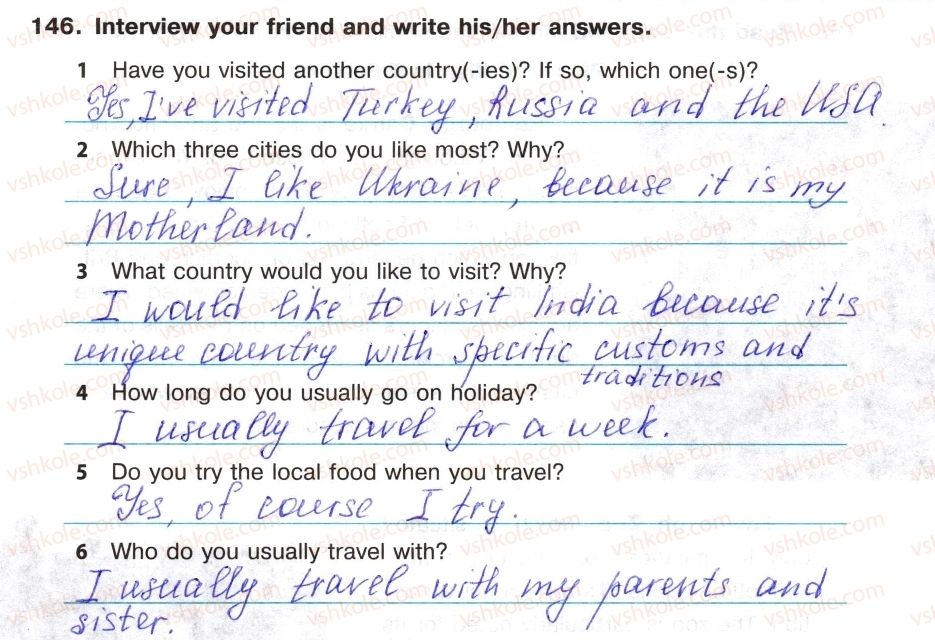 146. Interview your friend and write his/her answers.
1 Have you visited another country(-ies)? If so, which one(-s)?
Yes, I've visited Turkey, Russia and the USA.
2 Which three cities do you like most? Why?
Sure, I like Ukraine, because it is my
Motherland.
3 What country would you like to visit? Why?
I would like to visit India because it's
unique country with specific customs and
traditions
4 How long do you usually go on holiday?
I usually travel for a week.
5 Do you try the local food when you travel?
Yes, of course I try.
6 Who do you usually travel with?
I usually travel with my parents and
sister.